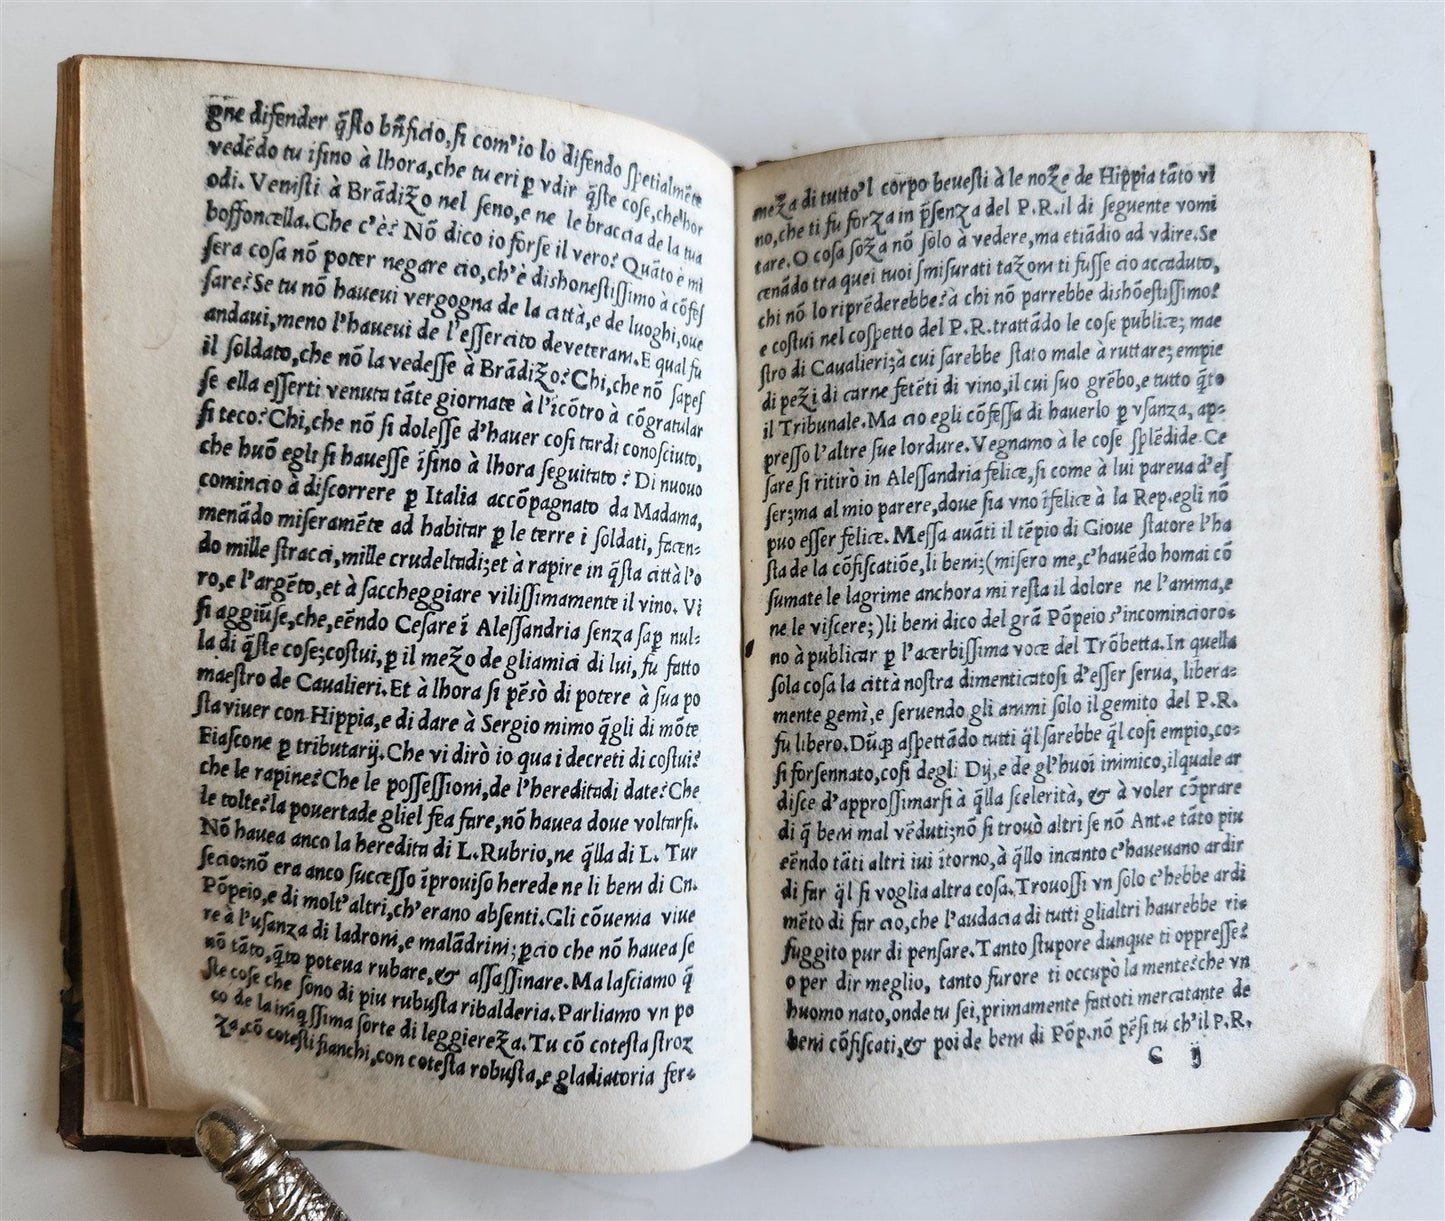 gne difender q̃sto bñficio, si com'io lo difendo spetialmẽte
vedẽdo tu ĩfino à lhora, che tu eri ꝑ vdir q̃ste cose, che'hor
odi. Venisti à Brãdizo nel seno, e ne le braccia de la tua
boffoncella. Che c'è? Nõ dico io forse il vero? Quãto è mi
sera cosa nõ poter negare cio, ch'è dishonestissimo à cõfes
sare? Se tu nõ haueui vergogna de la città, e de luoghi, oue
andaui, meno l'haueui de l'essercito de veterani. E qual fu
il soldato, che nõ la vedesse à Brãdizo? Chi, che nõ sapes
se ella esserti venuta tãte giornate à l'icõtro à cõgratular
si teco? Chi, che nõ si dolesse d'hauer cosi tardi conosciuto,
che huõ egli si hauesse ĩfino à lhora seguitato? Di nuouo
comincio à discorrere ꝑ Italia accõpagnato da Madama,
menãdo miseramẽte ad habitar ꝑ le terre i soldati, facen-
do mille stracci, mille crudeltadi; et à rapire in q̃sta città l'o
ro, e l'argẽto, et à saccheggiare vilissimamente il vino. Vi
si aggiũse, che, eẽndo Cesare ĩ Alessandria senza saꝑ nul-
la di q̃ste cose; costui, ꝑ il mezo de gliamici di lui, fu fatto
maestro de Caualieri. Et à lhora si pẽsò di potere à sua po
sta viuer con Hippia, e di dare à Sergio mimo q̃gli di mõte
Fiascone ꝑ tributarij. Che vi dirò io qua i decreti di costui?
che le rapine? Che le possessioni, de l'hereditadi date? Che
le tolte? la pouertade gliel fea fare, nõ hauea doue voltarsi.
Nõ hauea anco la heredita di L. Rubrio, ne q̃lla di L. Tur
secio: nõ era anco successo ĩprouiso herede ne li beni di Cn.
Põpeio, e di molt'altri, ch'erano absenti. Gli cõuenia viue
re à l'usanza di ladroni, e malãdrini; ꝑcio che nõ hauea se
nõ tãto, q̃to poteua rubare, & assassinare. Ma lasciamo q̃
ste cose che sono di piu rubusta ribalderia. Parliamo vn po
co de la inĩqssima sorte di leggiereza. Tu cõ cotesta stroz
za, cõ cotesti fianchi, con cotesta robusta, e gladiatoria fer-
meza di tutto'l corpo beuesti à le noze de Hippia tãto vi
no, che ti fu forza in p̃senza del P.R. il di seguente vomi
tare. O cosa soza nõ solo à vedere, ma etiãdio ad vdire. Se
cenãdo tra quei tuoi smisurati tazoni ti fusse cio accaduto,
chi nõ lo riprẽderebbe? à chi nõ parrebbe dishõestissimo?
e costui nel cospetto del P.R. trattãdo le cose publice; mae
stro di Caualieri; à cui sarebbe stato male à ruttare; empie
di pezi di carne fetẽti di vino, il cui suo grẽbo, e tutto q̃to
il Tribunale. Ma cio egli cõfessa di hauerlo ꝑ vsanza, ap-
presso l'altre sue lordure. Vegnamo à le cose splẽdide. Ce
sare si ritirò in Alessandria felice, si come à lui pareua d'es
ser; ma al mio parere, doue sia vno ĩfelice à la Rep. egli nõ
puo esser felice. Messa auãti il tẽpio di Gioue statore l'ha
sta de la cõfiscatiõe, li beni; (misero me, c'hauẽdo homai cõ
sumate le lagrime anchora mi resta il dolore ne l'amma, e
ne le viscere;) li beni dico del grã Põpeio s'incominciaro-
no à publicar ꝑ l'acerbissima voce del Trõbetta. In quella
sola cosa la città nostra dimenticatosi d'esser serua, libera-
mente gemì, e seruendo gli ammi solo il gemito del P.R.
fu libero. Dũqꝫ aspettãdo tutti q̃l sarebbe q̃l cosi empio, co-
si forsennato, cosi degli Dij, e de gl'huoi inimico, ilquale ar
disce d'approssimarsi à q̃lla scelerità, & à voler cõprare
di q̃ beni mal vẽduti; nõ si trouò altri se nõ Ant. e tãto piu
eẽndo tãti altri iui ĩtorno, à q̃llo incanto c'haueuano ardir
di far q̃l si voglia altra cosa. Trouossi vn solo c'hebbe ardi
mẽto di far cio, che l'audacia di tutti glialtri haurebbe ri-
fuggito pur di pensare. Tanto stupore dunque ti oppresse?
o per dir meglio, tanto furore ti occupò la mente? che vn
huomo nato, onde tu sei, primamente fattoti mercatante de
beni cõfiscati, & poi de beni di Põp. nõ pẽsi tu ch'il P.R.
C ij